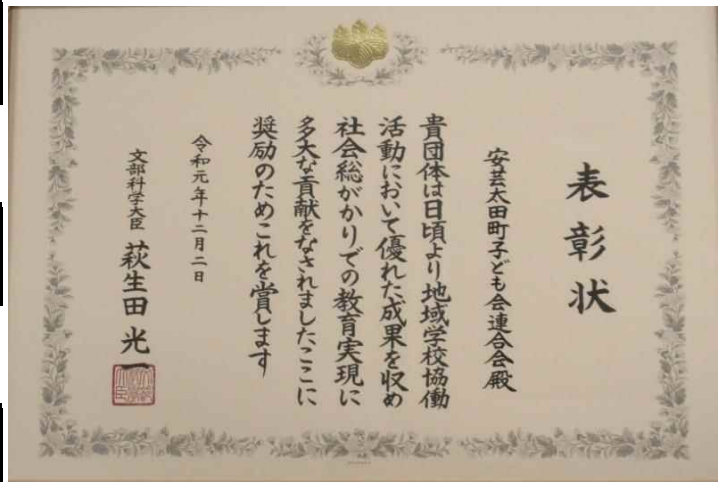 表彰状
安芸太田町子ども会連合会殿
貴団体は日頃より地域学校協働
活動において優れた成果を収め
社会総がかりでの教育実現に
多大な貢献をなされましたここに
奨励のためこれを賞します
令和元年十二月二日
文部科学大臣 萩生田光一